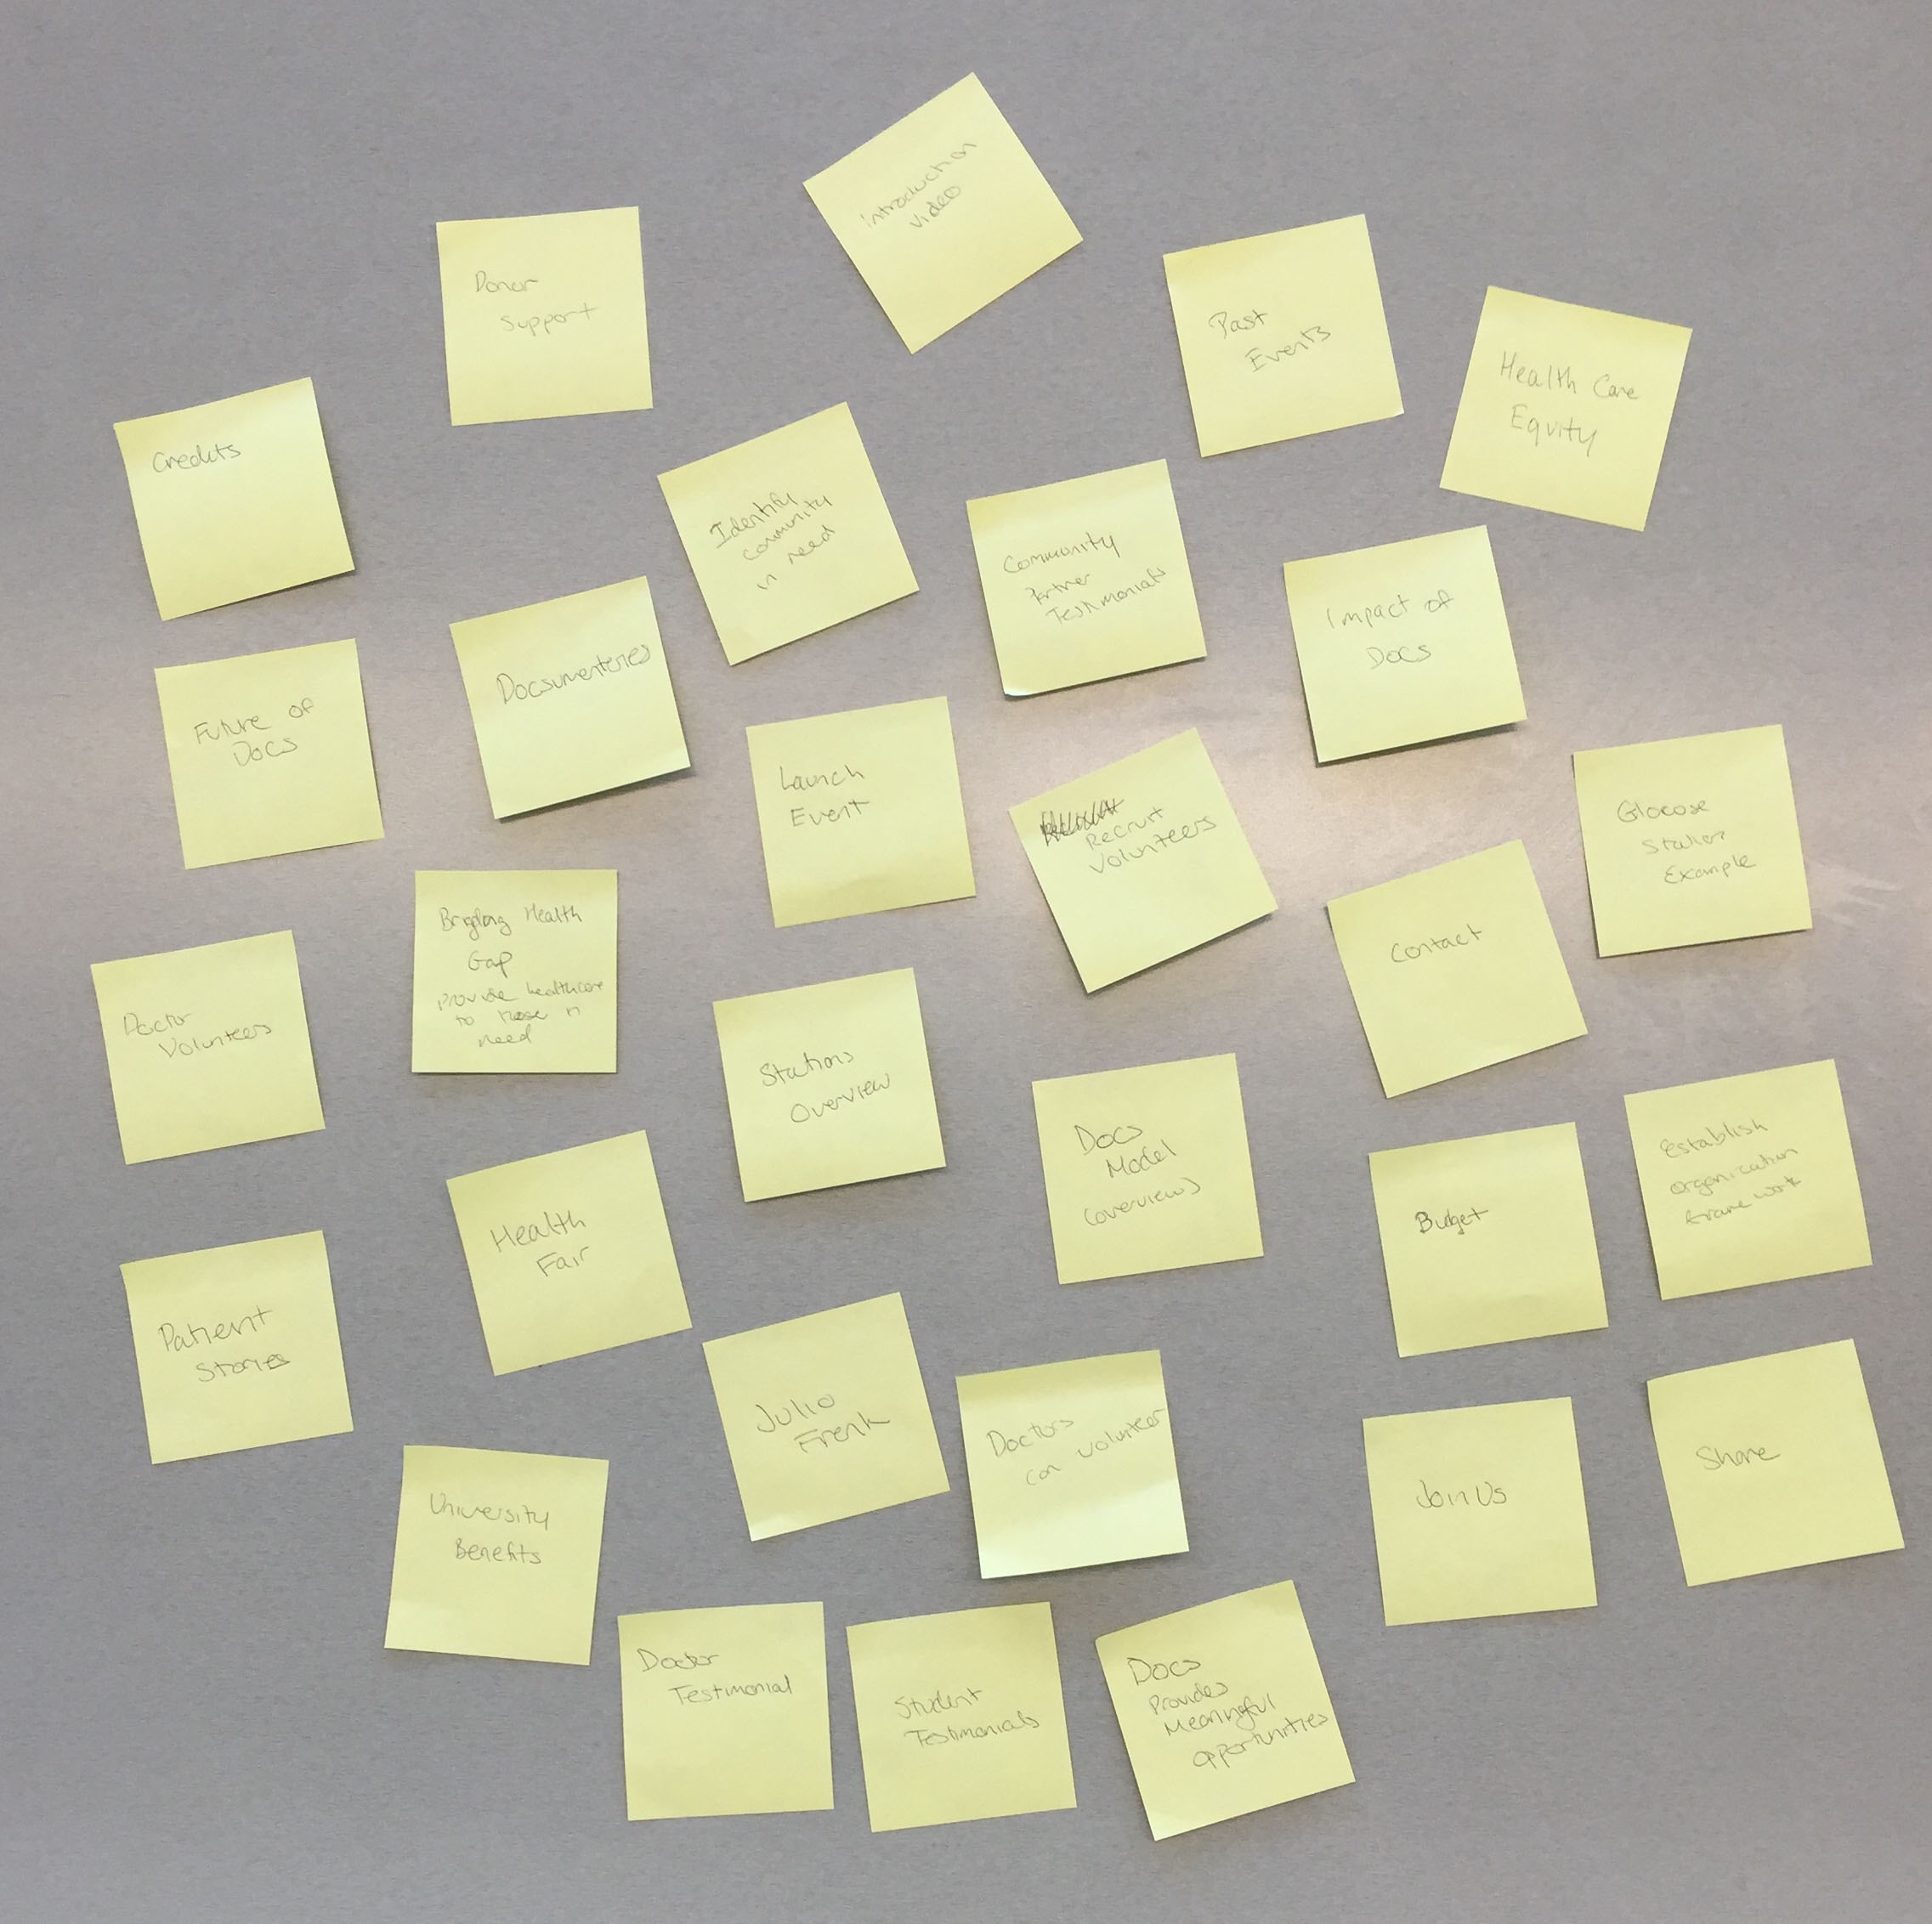 Introduction
Video
Donor
Support
Past
Events
Health Care
Equity
Credits
Identify
community
in need
Community
Partner
Testimonials
Impact of
Docs
Future of
Docs
Docsumenteries
Launch
Event
Recruit
Volunteers
Glocose
Station
Example
Contact
Bridging Health
Gap
provide healthcare
to those in
need
Doctor
Volunteers
Stations
Overview
Docs
Model
(overview)
Establish
organization
frame work
Budget
Health
Fair
Patient
Stories
Julio
Frenk
Doctors
can volunteer
Join Us
Share
University
Benefits
Doctor
Testimonial
Student
Testimonials
Docs
Provides
Meaningful
opportunities